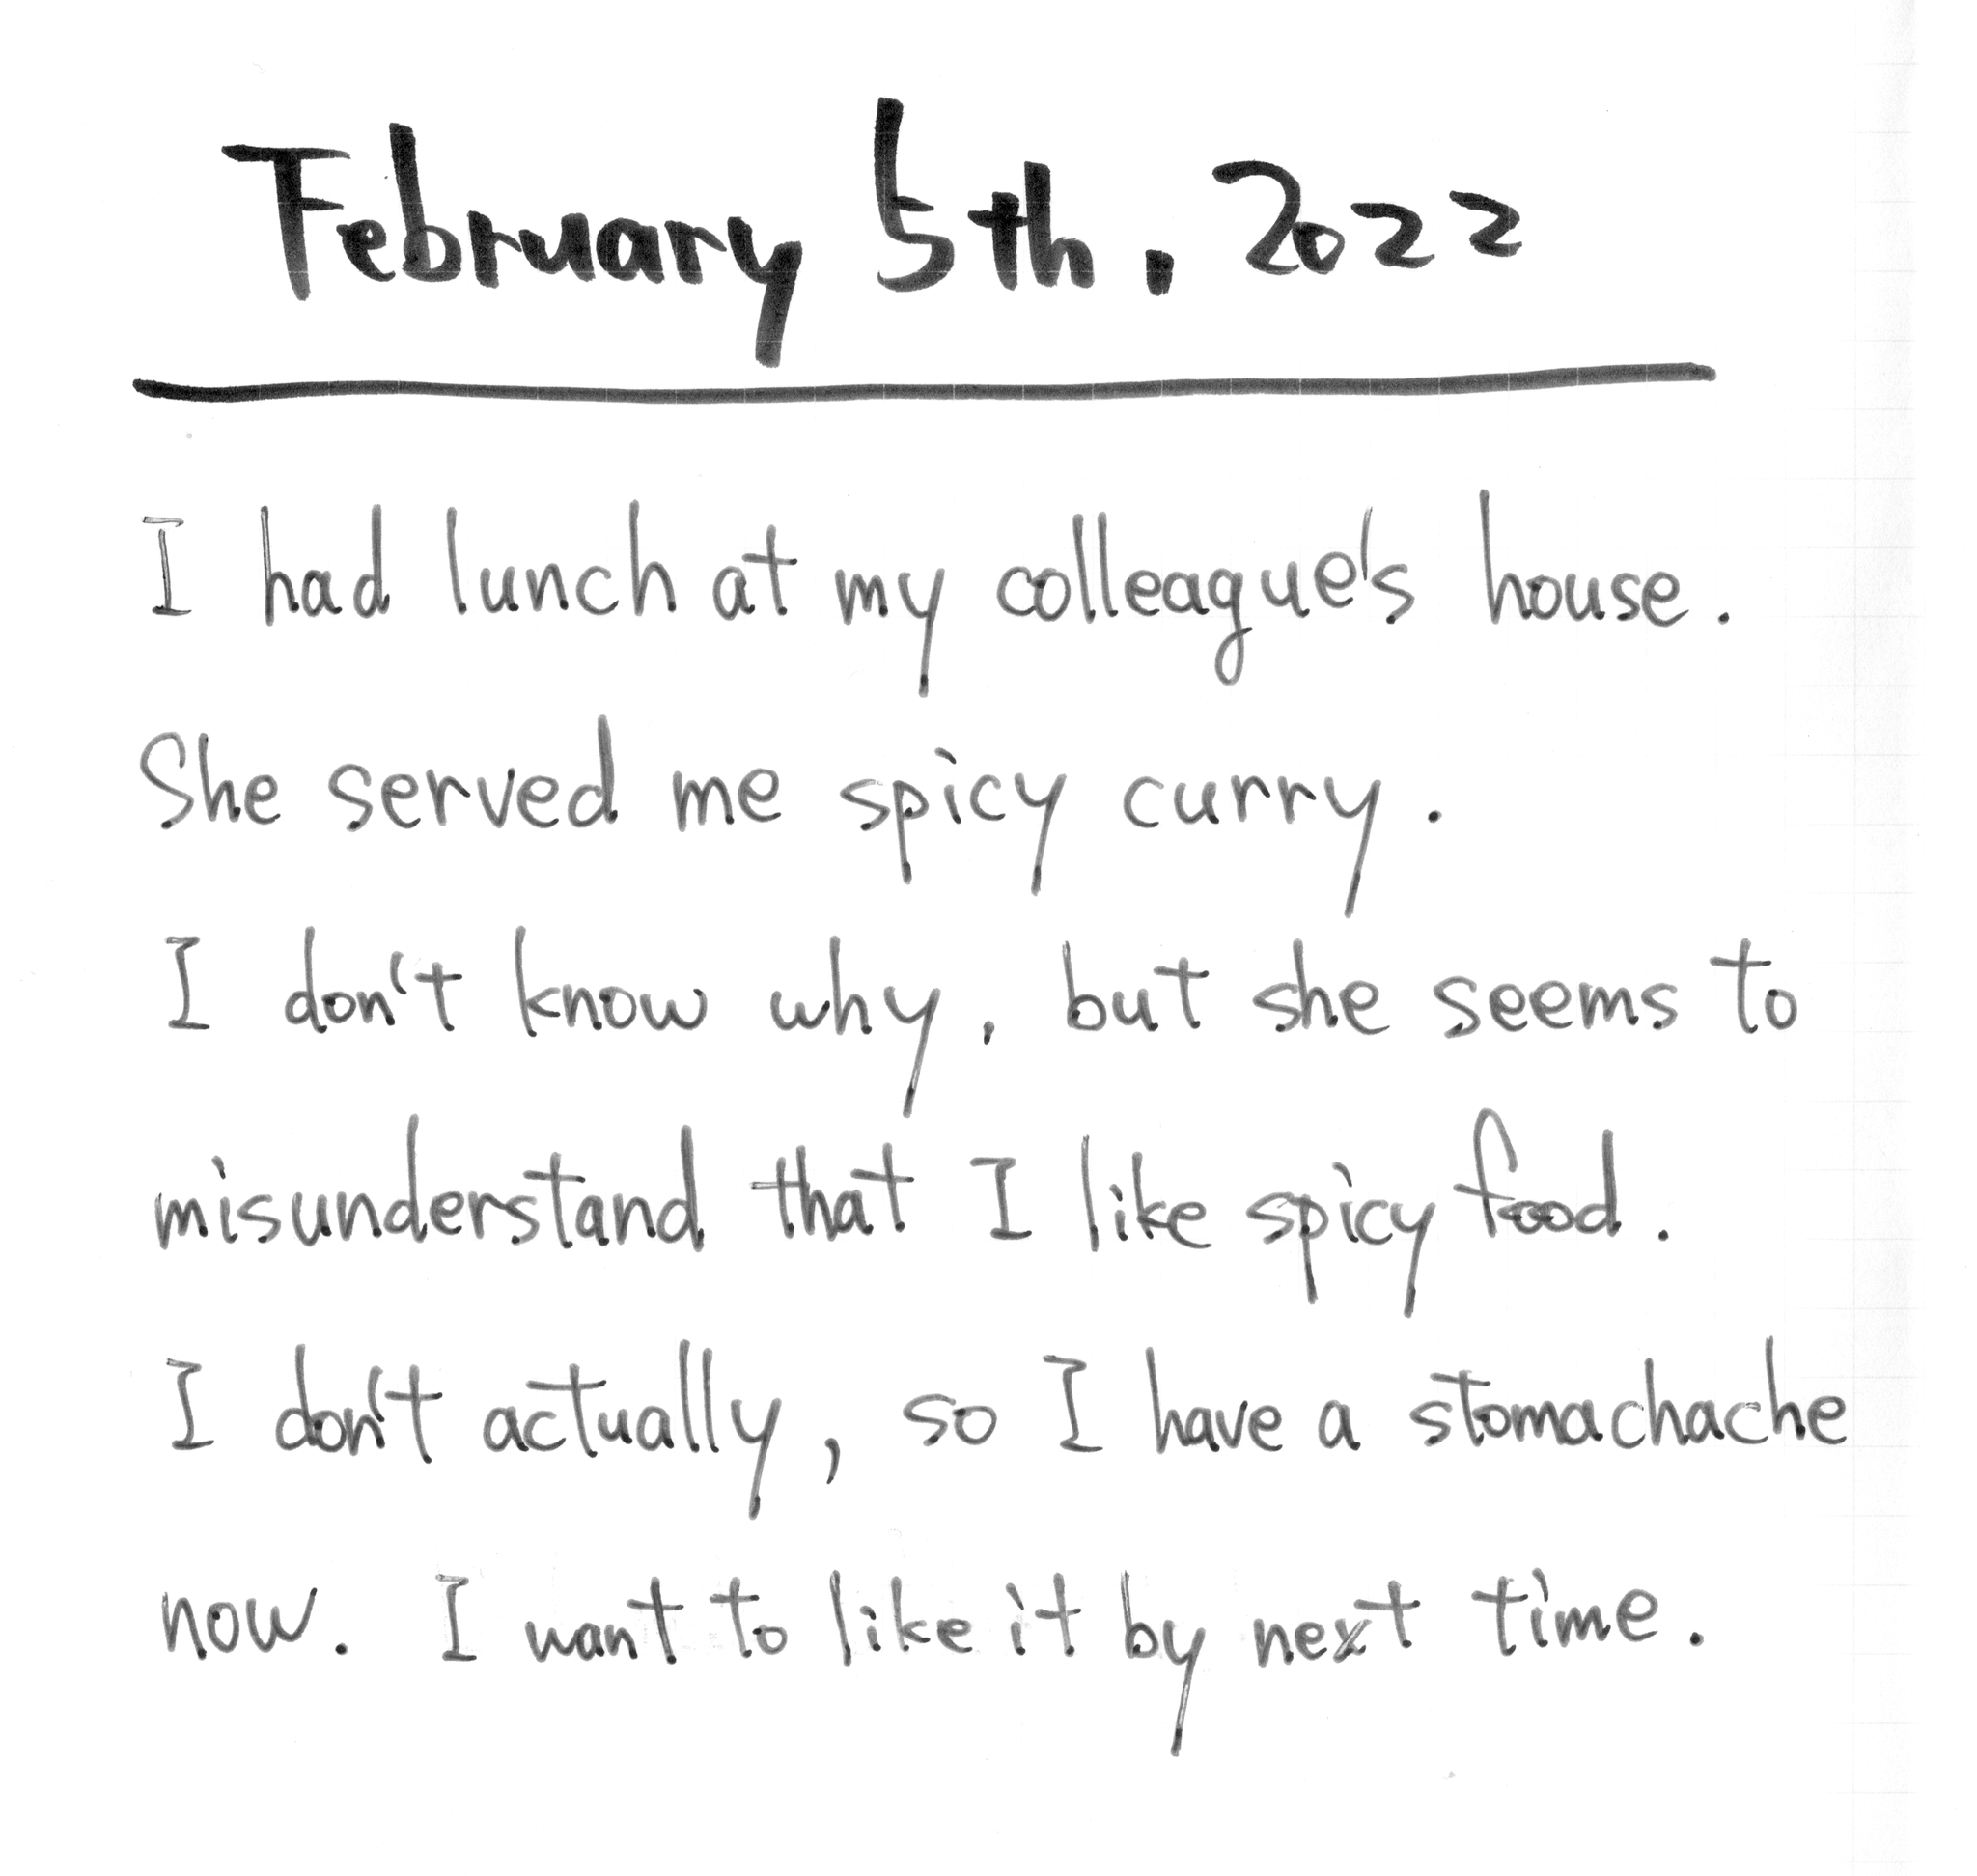 February 5th, 2022
I had lunch at my colleague's house.
She served me spicy curry.
I don't know why, but she seems to
misunderstand that I like spicy food.
I don't actually, so I have a stomachache
now. I want to like it by next time.